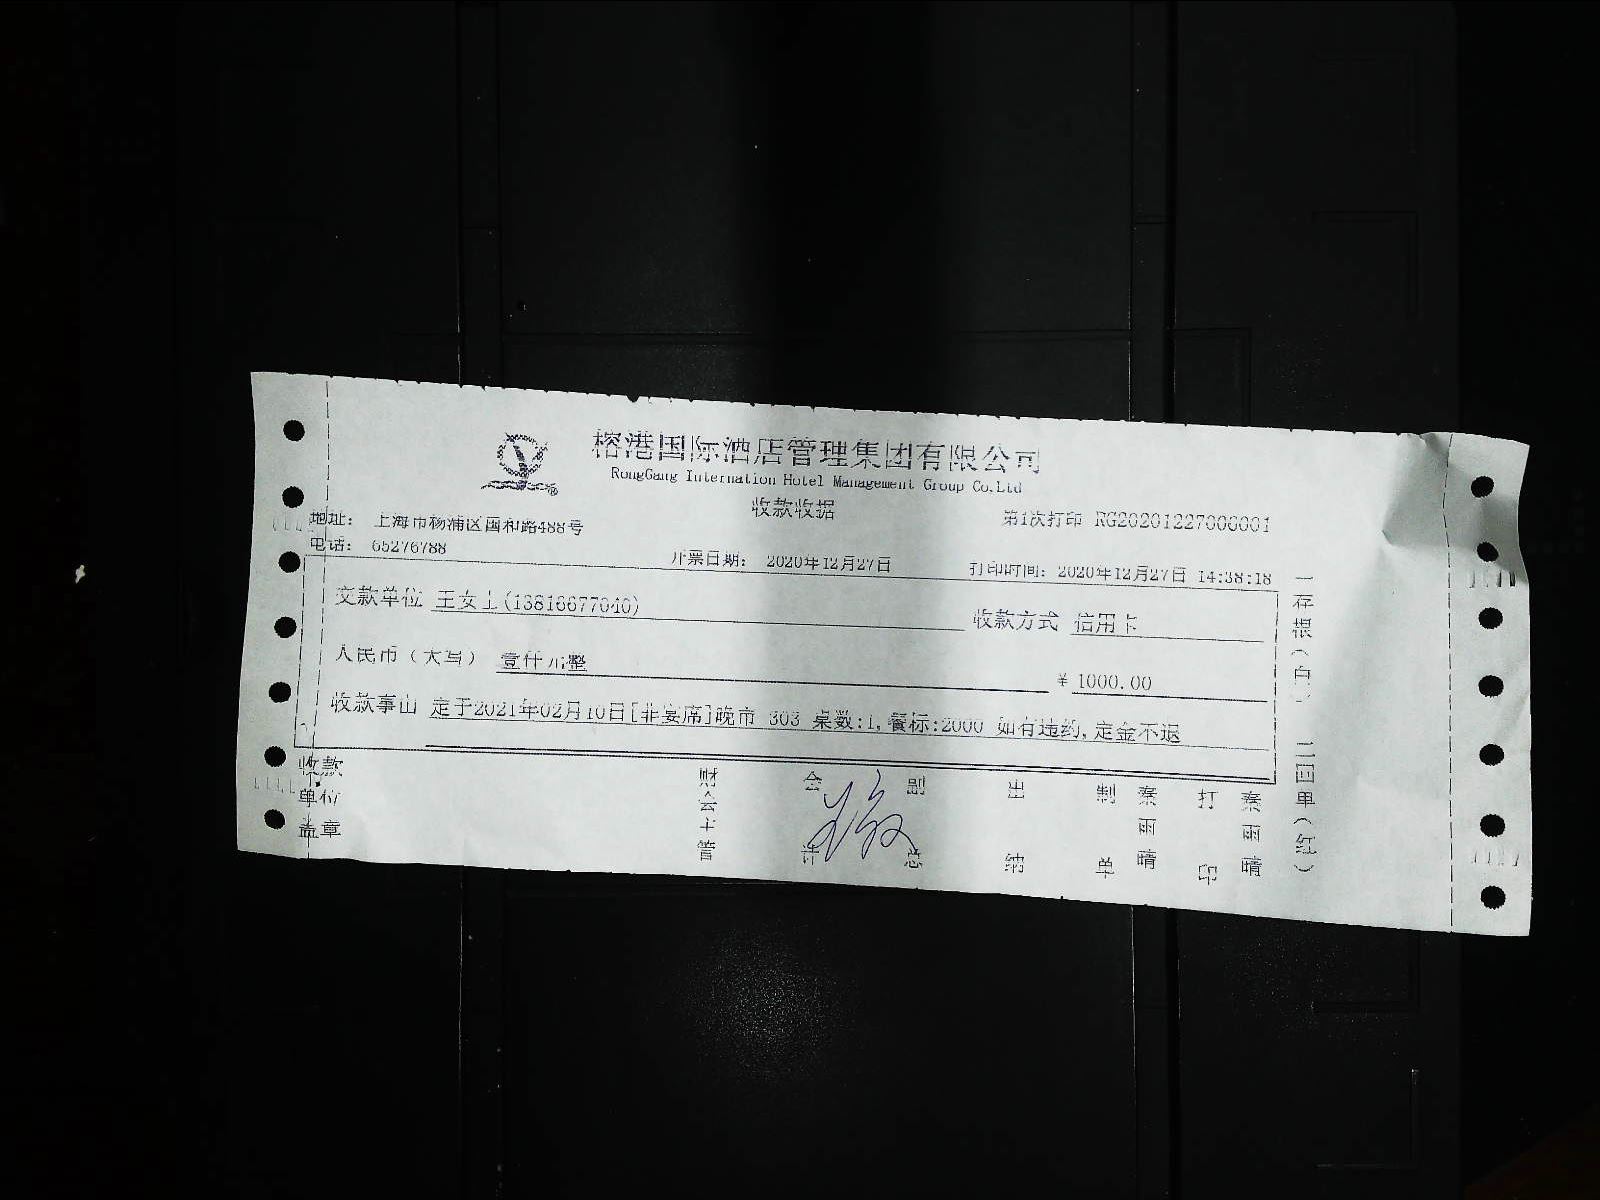 榕港国际酒店管理集团有限公司
RongGang Internation Hotel Management Group Co.Ltd
收款收据
地址： 上海市杨浦区国和路488号
第1次打印 RG20201227000001
电话： 65276788
开票日期： 2020年12月27日
打印时间：2020年12月27日 14:38:18
交款单位 王女士(13816677040)
收款方式 信用卡
人民币（大写） 壹仟元整
￥ 1000.00
收款事由 定于2021年02月10日[非宴席]晚市 303 桌数:1,餐标:2000 如有违约,定金不退
收款单位盖章
财会主管
会计
副总
出纳
制单 秦雨晴
打印 秦雨晴
一存根（白） 二四单（红）